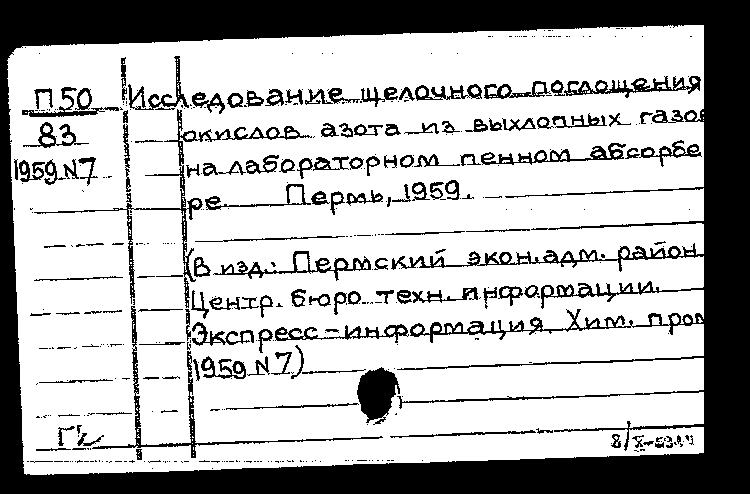 П 50
83
1959 N 7
Исследование щелочного поглощения
окислов азота из выхлопных газов
на лабораторном пенном абсорбе
ре. Пермь, 1959.
(В изд.: Пермский экон. адм. район.
Центр. бюро техн. информации.
Экспресс-информация. Хим. пром
1959 N 7)